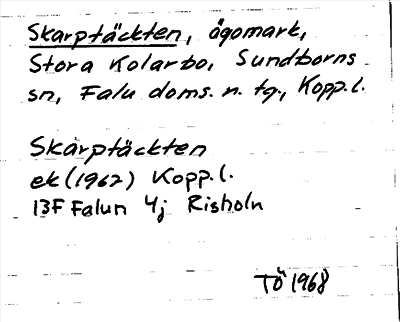 Skarptäckten, ägomark,
Stora Kolarbo, Sundborns
sn, Falu doms. n. tg., Kopp. l.
Skarptäckten
ek (1962) Kopp. l.
13F Falun 4j Risholn
TÖ 1968